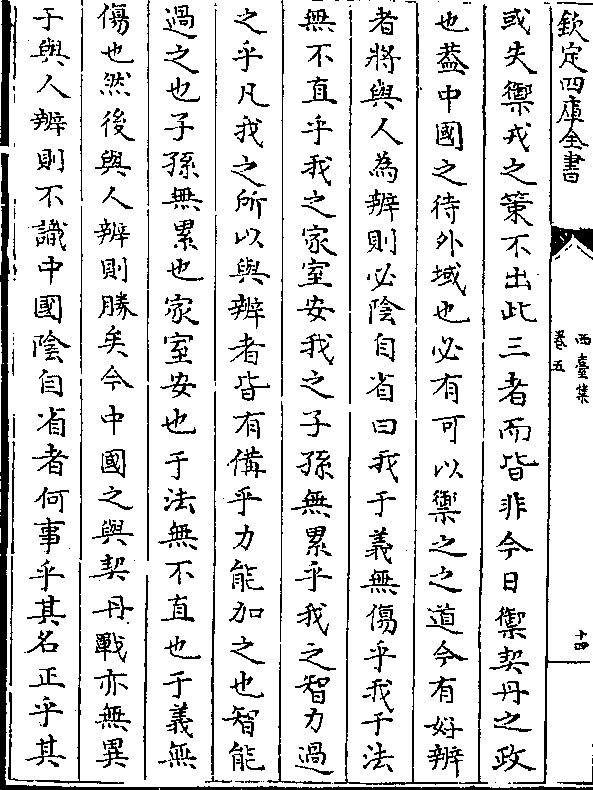 欽定四庫全書
西臺集
卷五
十四
或失禦戎之策不出此三者而皆非今日禦契丹之政
也葢中國之待外域也必有可以禦之之道今有好辨
者將與人為辨則必陰自省曰我于義無傷乎我于法
無不直乎我之家室安我之子孫無累乎我之智力過
之乎凡我之所以與辨者皆有備乎力能加之也智能
過之也子孫無累也家室安也于法無不直也于義無
傷也然後與人辨則勝矣今中國之與契丹戰亦無異
于與人辨則不識中國陰自省者何事乎其名正乎其